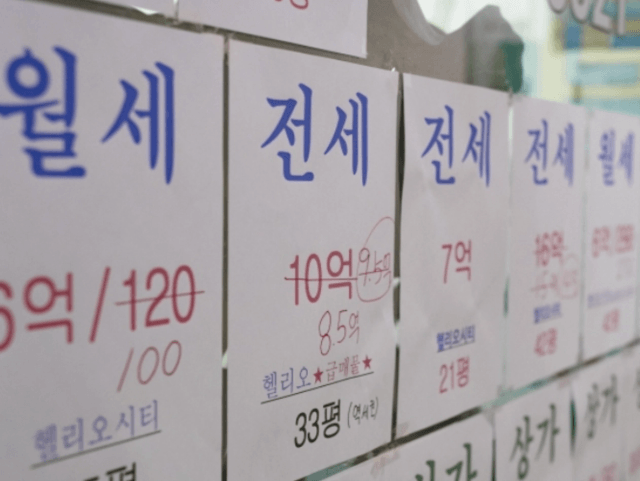 월세
6억/120
100
헬리오시티
평
전세
10억 9.5억
8.5억
헬리오★급매물★
33평 (역세권)
전세
7억
헬리오시티
21평
전세
16억
헬리오시티
42평
월세
6억
상가
상가
상가